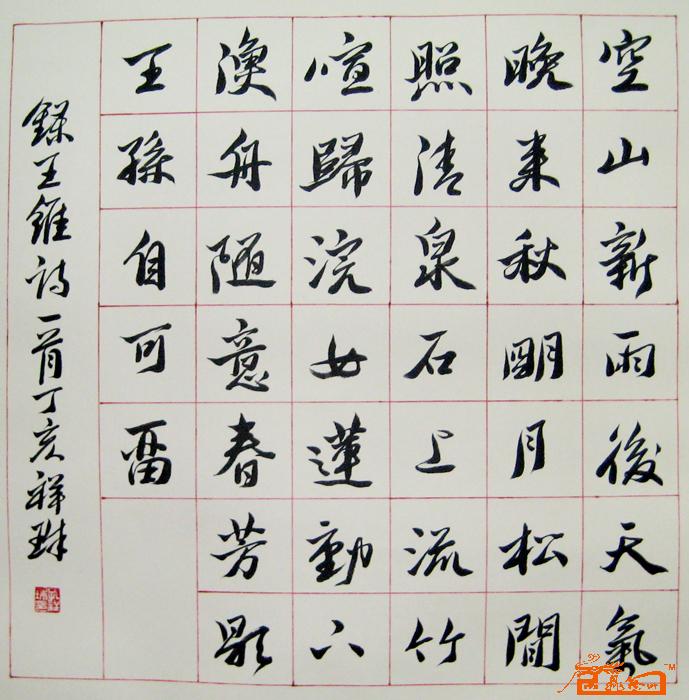 空山新雨後天氣
晚来秋明月松間
照清泉石上流竹
喧歸浣女蓮動下
漁舟隨意春芳歇
王孫自可留
錄王維诗一首丁亥祥珠